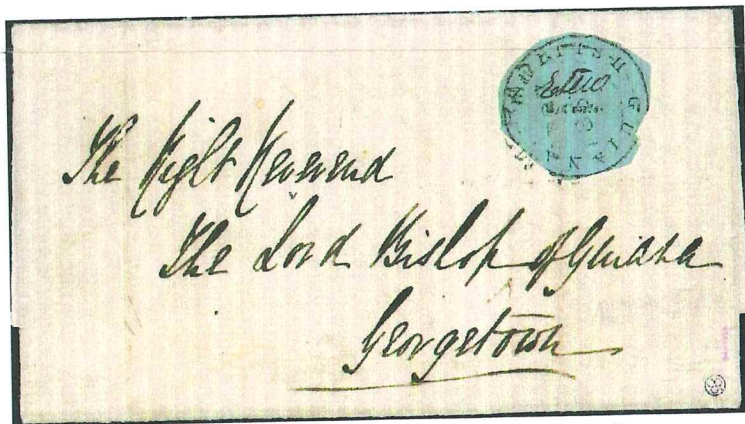 BRITISH
GUIANA
The Right Reverend
The Lord Bishop of Guiana
Georgetown